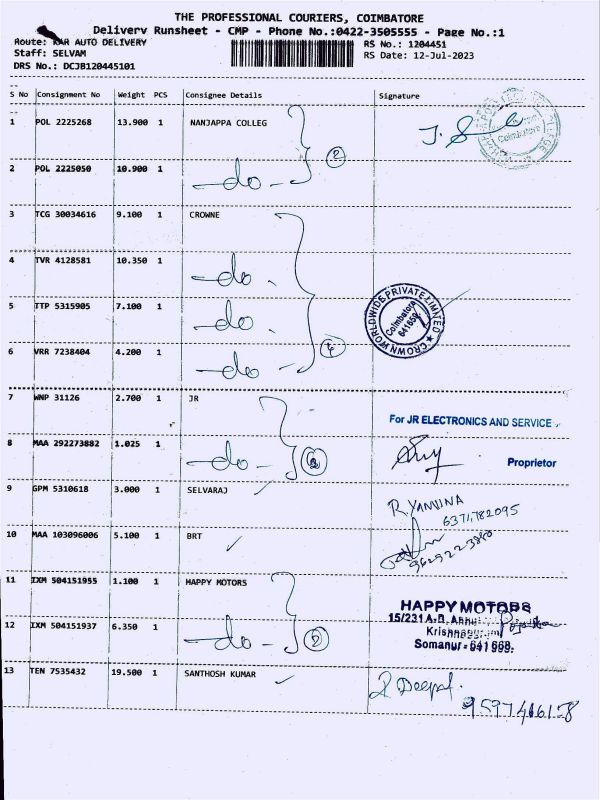 THE PROFESSIONAL COURIERS, COIMBATORE
Delivery Runsheet - CMP - Phone No.:0422-3505555 - Page No.:1
Route: KAR AUTO DELIVERY RS No.: 1204451
Staff: SELVAM RS Date: 12-Jul-2023
DRS No.: DCJB120445101
S No Consignment No Weight PCS Consignee Details Signature
1 POL 2225268 13.900 1 NANJAPPA COLLEG
Coimbatore
2 POL 2225050 10.900 1 -do- 2
3 TCG 30034616 9.100 1 CROWNE
4 TVR 4128581 10.350 1 -do.
5 TTP 5315905 7.100 1 -do.
CROWN WORLDWIDE PRIVATE LIMITED
Coimbatore
641659
6 VRR 7238404 4.200 1 -do- 4
7 WNP 31126 2.700 1 JR
For JR ELECTRONICS AND SERVICE
8 MAA 292273882 1.025 1 -do-
Proprietor
9 GPM 5310618 3.000 1 SELVARAJ
R YAMUNA
6371782095
10 MAA 103096006 5.100 1 BRT
11 IXM 504151955 1.100 1 HAPPY MOTORS
HAPPY MOTORS
15/231 A-B,
12 IXM 504151937 6.350 1 -do- 2
Somanur - 641 668.
13 TEN 7535432 19.500 1 SANTHOSH KUMAR
R Deepa